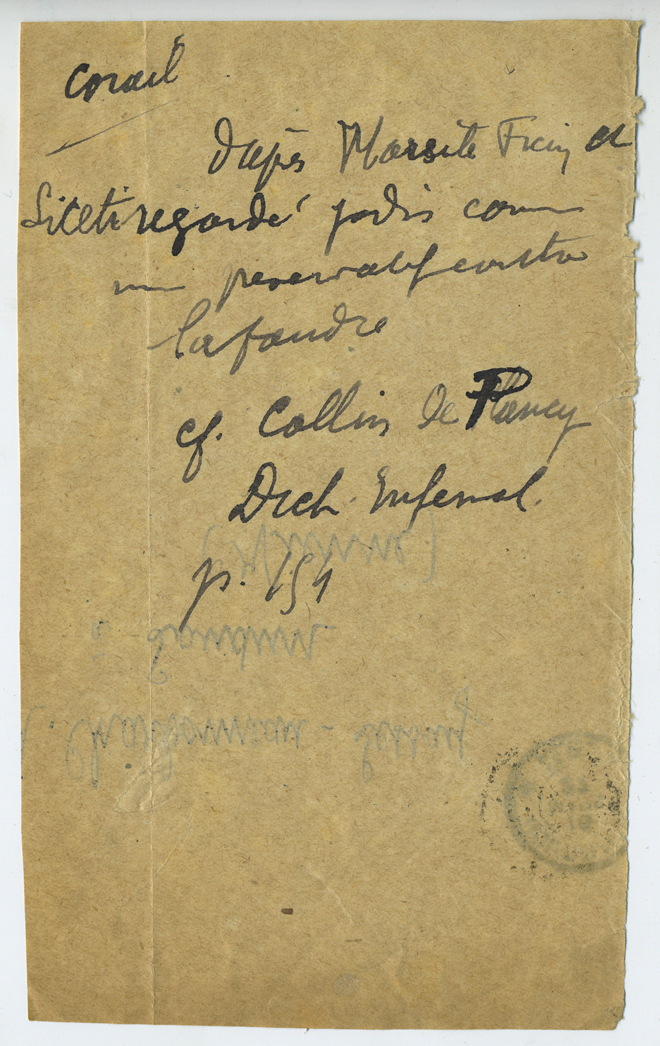 corail
d'après Marsile Ficin et
Liceti regardé jadis comme
un préservatif contre
la foudre
cf. Collin de Plancy
Dict. Infernal.
p. 154